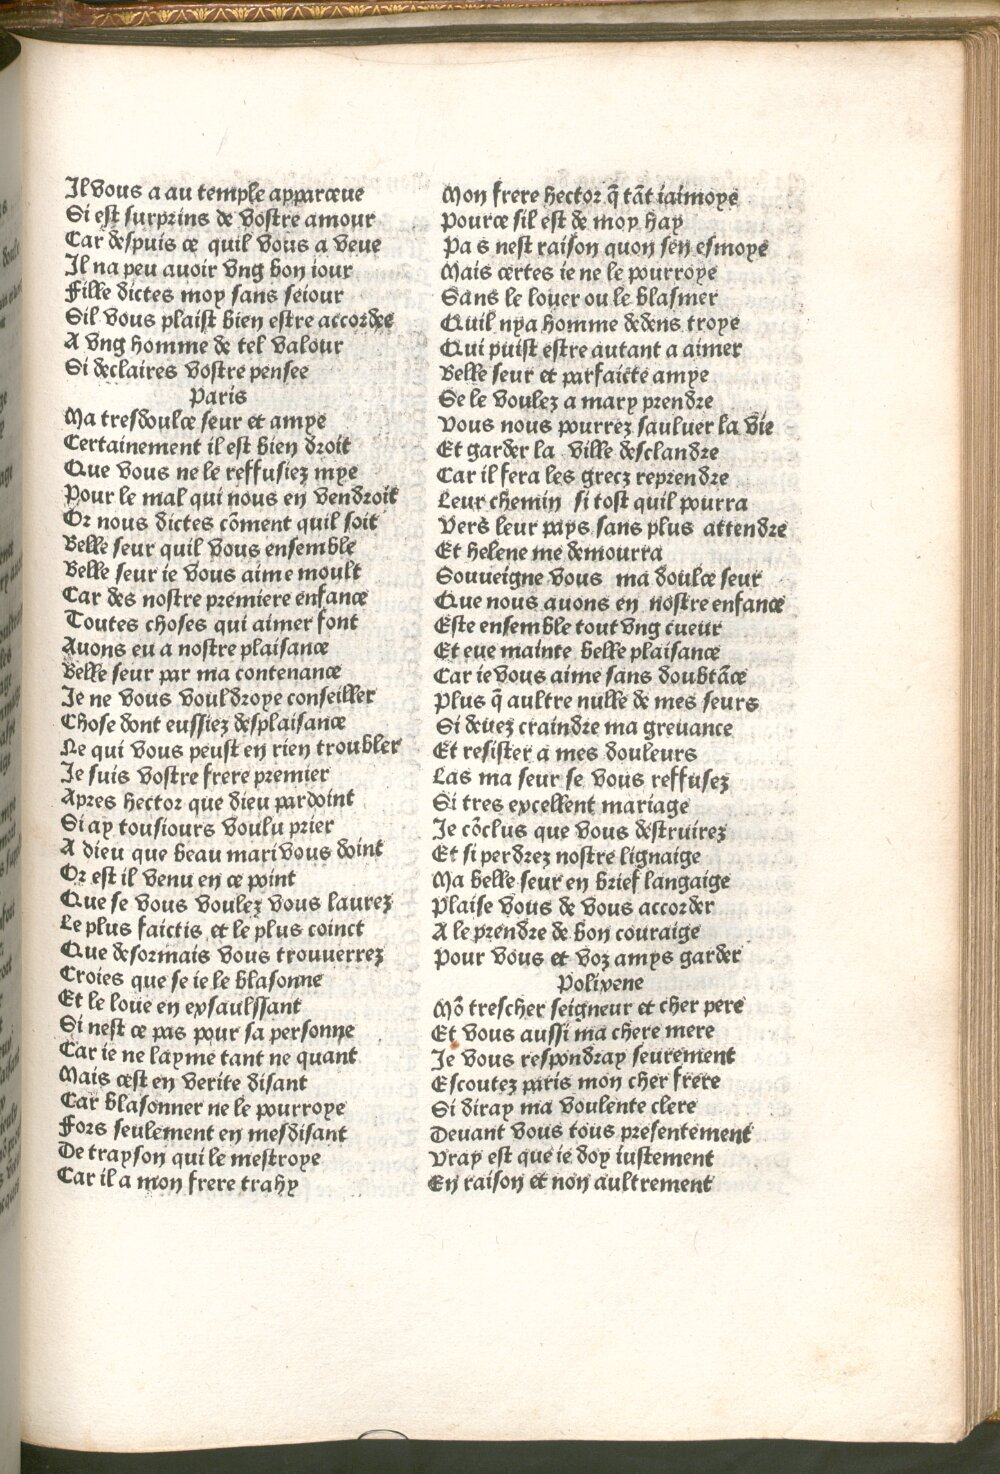 Il vous a au temple apparceue
Si est surprins de vostre amour
Car despuis ce quil vous a veue
Il na peu auoir vng bon iour
Fille dictes moy sans seiour
Sil vous plaist bien estre accordee
A vng homme de tel valour
Si declaires vostre pensee
Paris
Ma tresdoulce seur et amye
Certainement il est bien droit
Que vous ne le reffusiez mye
Pour le mal qui nous en vendroit
Or nous dictes cōment quil soit
Belle seur quil vous ensemble
Belle seur ie vous aime moult
Car des nostre premiere enfance
Toutes choses qui aimer font
Auons eu a nostre plaisance
Belle seur par ma contenance
Je ne vous vouldroye conseiller
Chose dont eussiez desplaisance
Ne qui vous peust en rien troubler
Je suis vostre frere premier
Apres hector que dieu pardoint
Si ay tousiours voulu prier
A dieu que beau mari vous doint
Or est il venu en ce point
Que se vous voulez vous laurez
Le plus faictis et le plus coinct
Que desormais vous trouuerrez
Croies que se ie le blasonne
Et le loue en exsaulssant
Si nest ce pas pour sa personne
Car ie ne layme tant ne quant
Mais cest en verite disant
Car blasonner ne le pourroye
Fors seulement en mesdisant
De trayson qui le mestroye
Car il a mon frere trahy
Mon frere hector q̄ tāt iaimoye
Pource sil est de moy hay
Pa s nest raison quon sen esmoye
Mais certes ie ne le pourroye
Sans le louer ou le blasmer
Quil nya homme dedens troye
Qui puist estre autant a aimer
Belle seur et parfaicte amye
Se le voulez a mary prendre
Vous nous pourrez sauluer la vie
Et garder la ville desclandre
Car il fera les grecz reprendre
Leur chemin si tost quil pourra
Vers leur pays sans plus attendre
Et helene me demourra
Souueigne vous ma doulce seur
Que nous auons en nostre enfance
Este ensemble tout vng cueur
Et eue mainte belle plaisance
Car ie vous aime sans doubtāce
Plus q̄ aultre nulle de mes seurs
Si deuez craindre ma greuance
Et resister a mes douleurs
Las ma seur se vous reffusez
Si tres excellent mariage
Je cōclus que vous destruirez
Et si perdrez nostre lignaige
Ma belle seur en brief langaige
Plaise vous de vous accorder
A le prendre de bon couraige
Pour vous et voz amys garder
Polixene
Mō trescher seigneur et cher pere
Et vous aussi ma chere mere
Je vous respondray seurement
Escoutez paris mon cher frere
Si diray ma voulente clere
Deuant vous tous presentement
Vray est que ie doy iustement
En raison et non aultrement